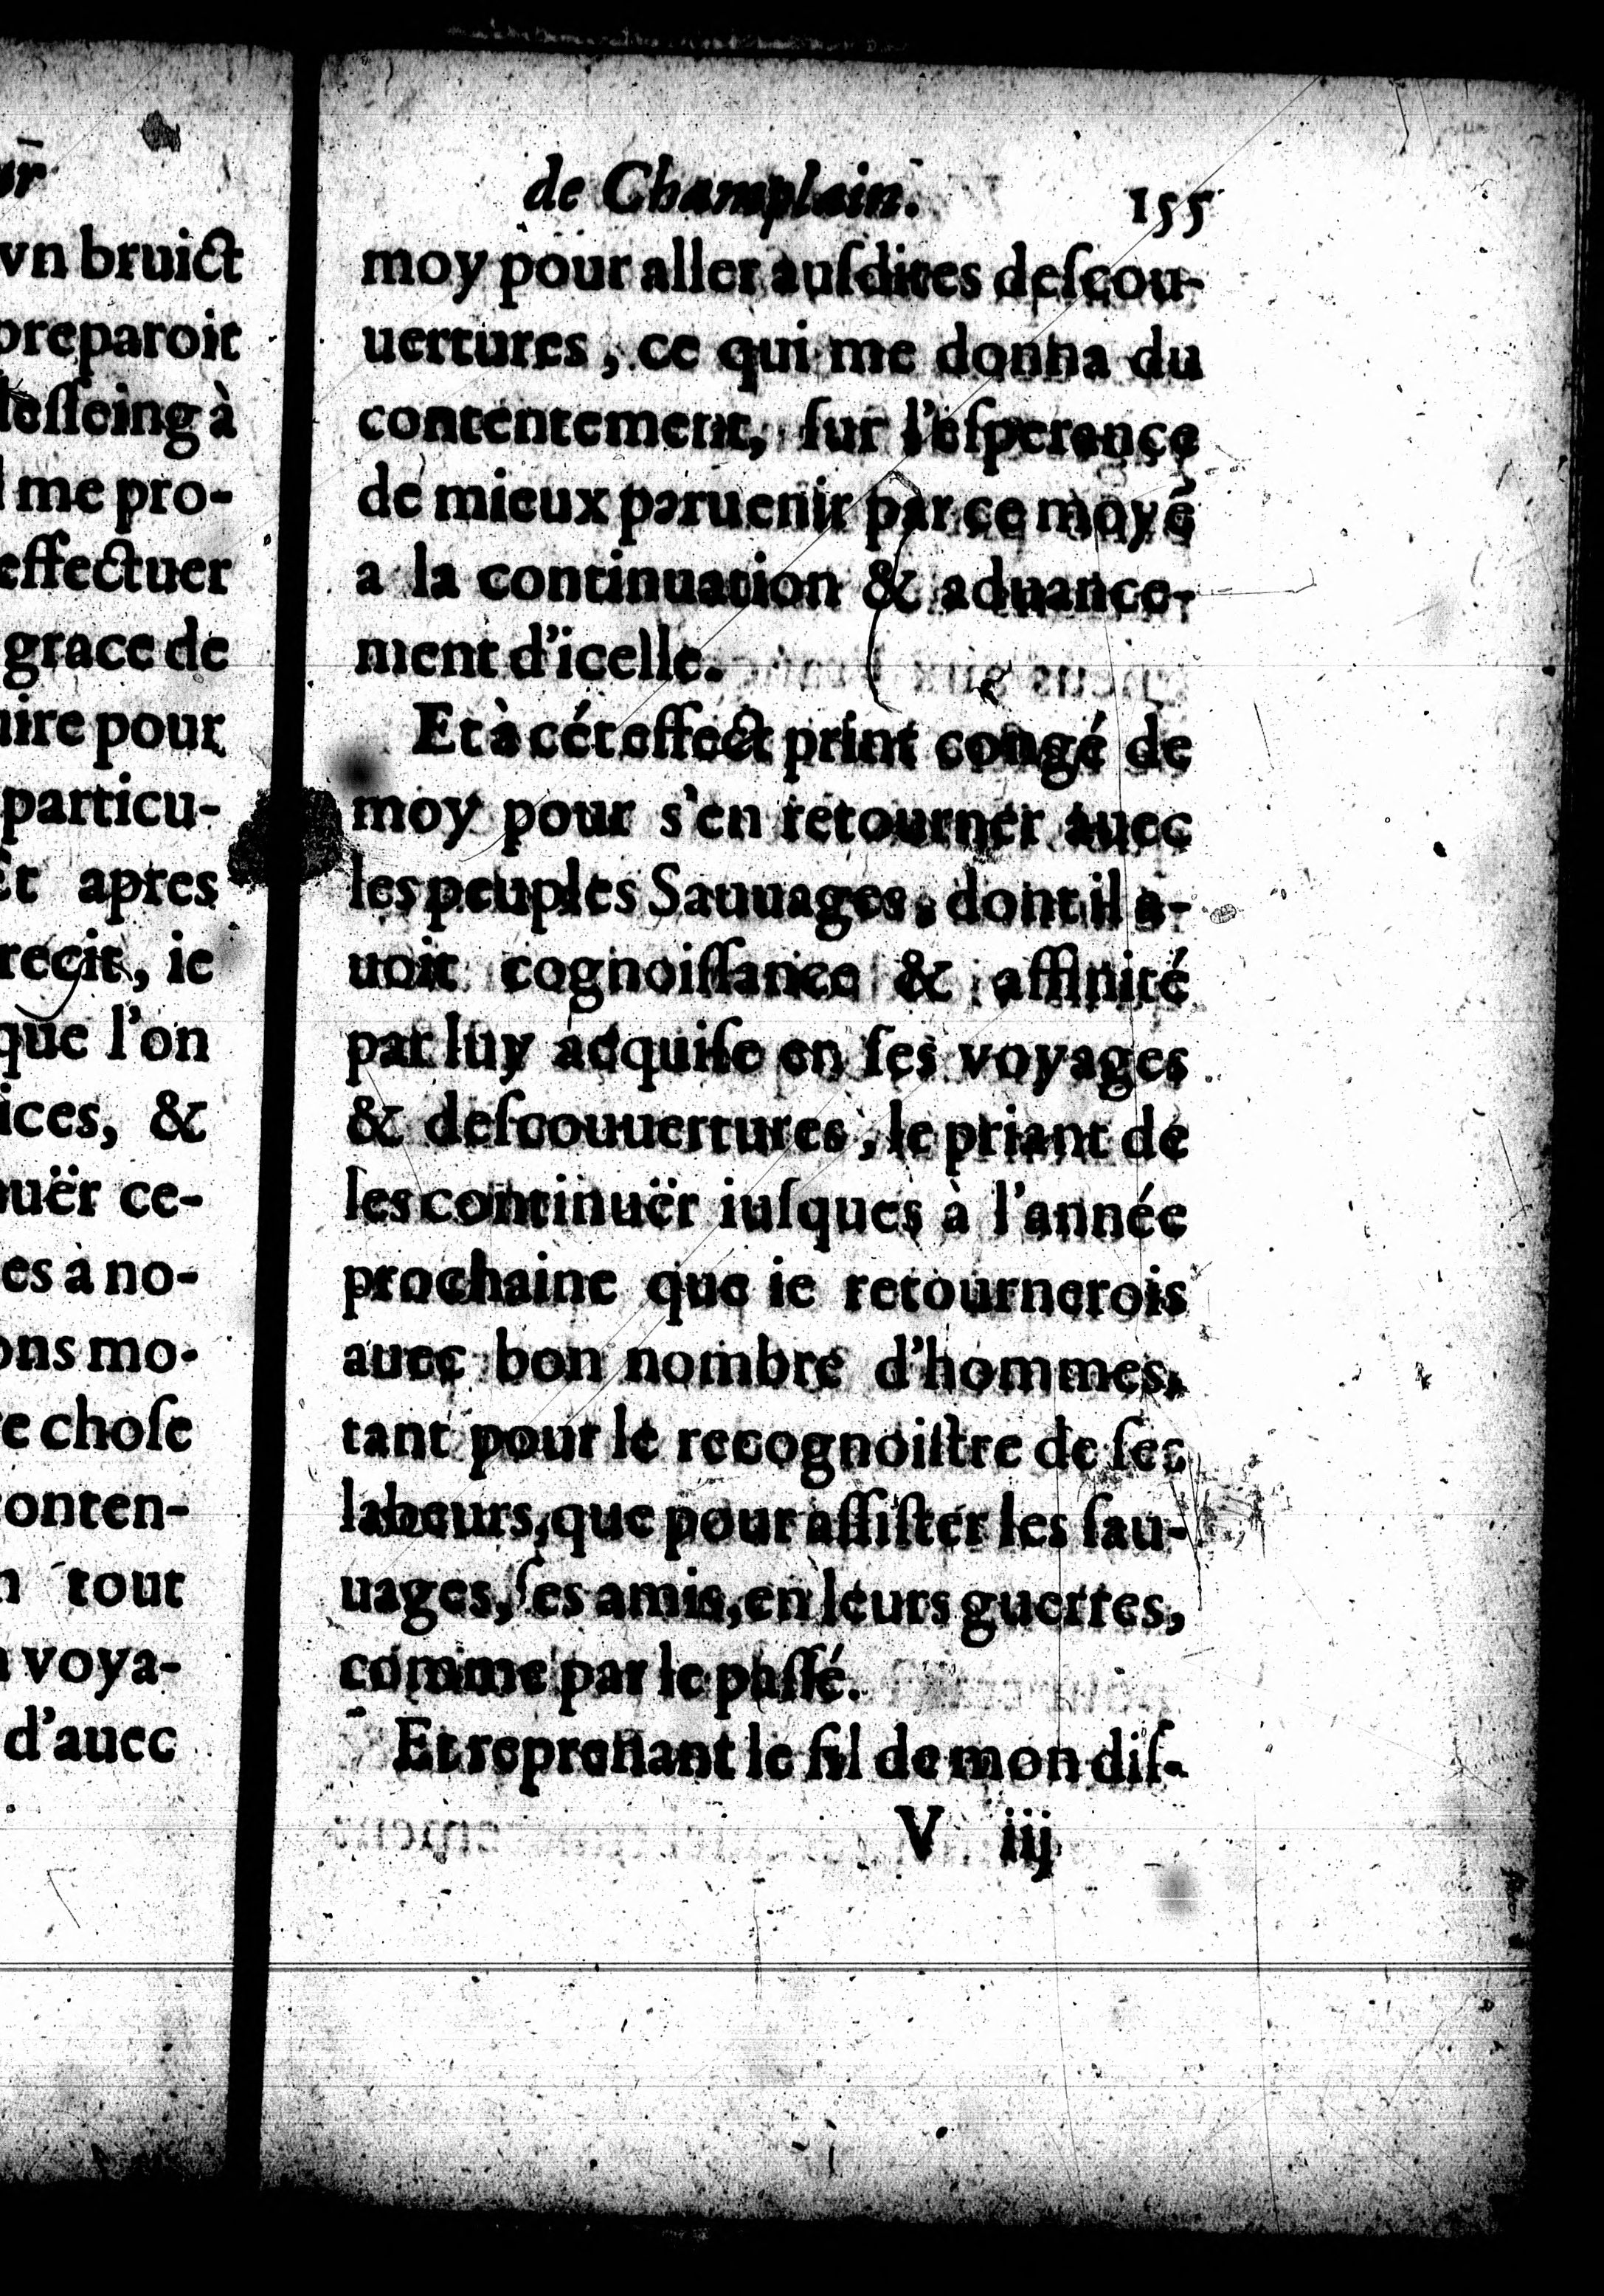 vn bruict
preparoit
desseing à
me pro-
effectuer
grace de
pour
particu-
apres
recit, ie
que l'on
&
ce-
es à no-
mo-
choſe
conten-
tout
voya-
d'auec
de Champlain. 155
moy pour aller auſdites deſcou-
uertures, ce qui me donna du
contentement, ſur l'eſperance
de mieux paruenir par ce moyẽ
a la continuation & aduance-
ment d'icelle.
Et à cét effect print congé de
moy pour s'en retourner auec
les peuples Sauuages, dont il a-
uoit cognoiſſance & affinité
par luy acquiſe en ſes voyages
& deſcouuertures, le priant de
les continuër iuſques à l'année
prochaine que ie retournerois
auec bon nombre d'hommes,
tant pour le recognoiſtre de ſes
labeurs, que pour aſſiſter les ſau-
uages, ſes amis, en leurs guerres,
comme par le paſſé.
Et reprenant le fil de mon diſ-
V iij